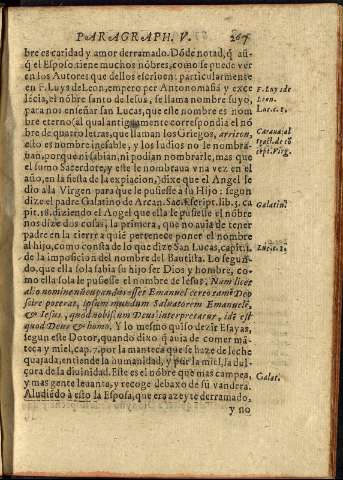 PARAGRAPH. V.
bre es caridad y amor derramado. Dõde notad, q̃ aũ-
q̃ el Esposo tiene muchos nõbres, como se puede ver
en los Autores que dellos escriuen: particularmente
en F. Luys de Leon, empero per Antonomasia y exce
lẽcia, el nõbre santo de Iesus, se llama nombre suyo,
para nos enseñar san Lucas, que este nombre es nom
bre eterno, al qual antiguamente correspondia el nõ
bre de quatro letras, que llaman los Griegos, arriton,
esto es nombre inefable, y los Iudios no le nombra-
ban, porque ni sabian, ni podian nombrarle, mas que
el sumo Sacerdote, y este le nombraua vna vez en el
año, en la fiesta de la expiacion, dixe que el Angel le
dio a la Virgen para que le pusiesse a su Hijo: segun
dize el padre Galatino de Arcan. Sac. Script. lib. 3. ca
pit. 18. diziendo el Angel que ella le pusiesse el nõbre
nos dize dos cosas, la primera, que no auia de tener
padre en la tierra a quiẽ pertenece poner el nombre
al hijo, como consta de lo que dize San Lucas, capit. 1.
de la imposicion del nombre del Bautista. Lo segun-
do, que ella sola sabia su hijo ser Dios y hombre, co-
mo ella sola le pusiesse el nombre de Iesus,
scire poteras, ipsum mundum Saluatorem Emanuelẽ,
& Iesus, quod nobiscum Deus interpretatur, idẽ est
quod Deus & homo. Y lo mesmo quiso dezir Esayas,
segun este Dotor, quando dixo q̃ auia de comer mã-
teca y miel, cap. 7. por la manteca que se haze de leche
quajada, entiende la humanidad, y por la miel, la dul-
çura de la diuinidad. Este es el nõbre que mas campea,
y mas gente leuanta, y recoge debaxo de su vandera.
Aludiẽdo à esto la Esposa, que era azeyte derramado,
y no
F. Luys de
Leon.
Luc. c. 1.
Galatin.
Luc. c. 1.
Galat.